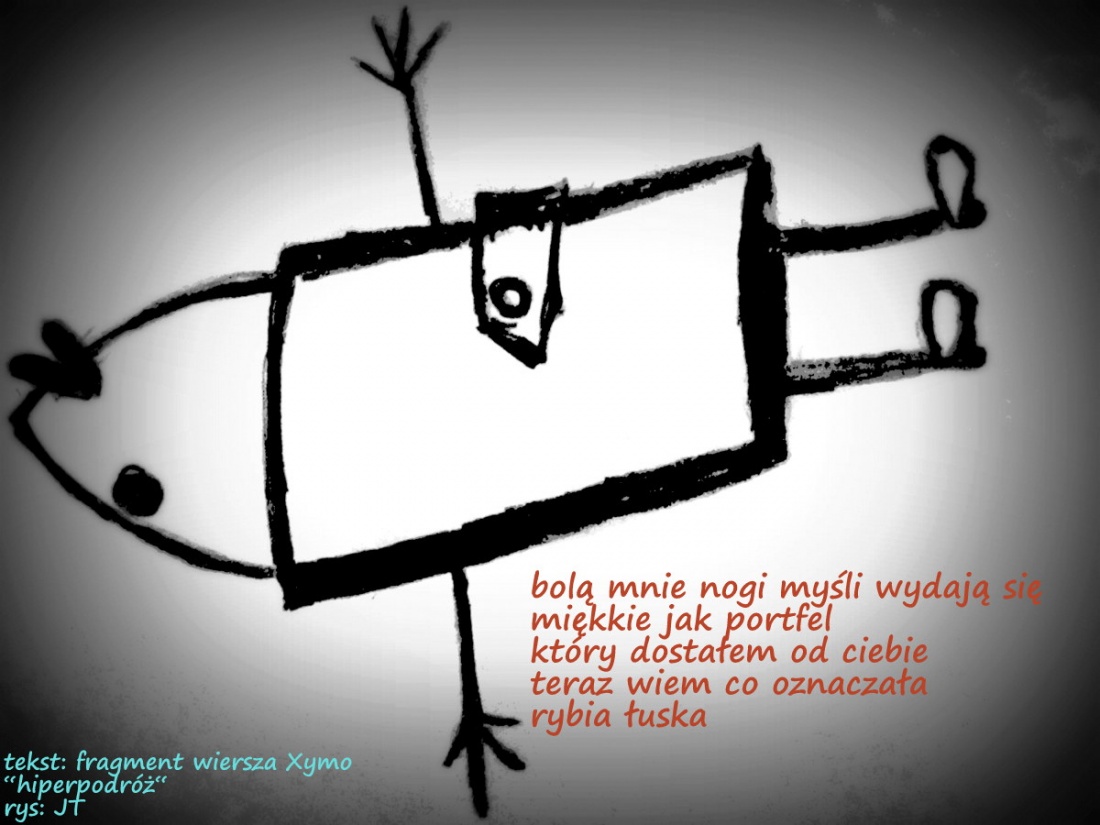 bolą mnie nogi myśli wydają się
miękkie jak portfel
który dostałem od ciebie
teraz wiem co oznaczała
rybia łuska
tekst: fragment wiersza Xymo
“hiperpodróż“
rys: JT